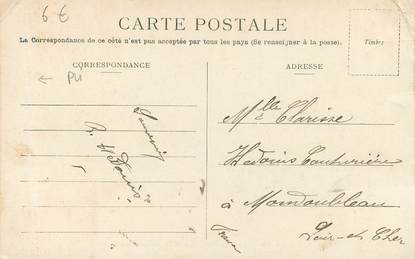 6 €
CARTE POSTALE
La Correspondance de ce côté n'est pas acceptée par tous les pays (Se renseigner à la poste).
Timbre
← PLI
CORRESPONDANCE
ADRESSE
Souvenir
Melle Clarisse
Hedouis Couturière
à Mondoubleau
Loir-et Cher